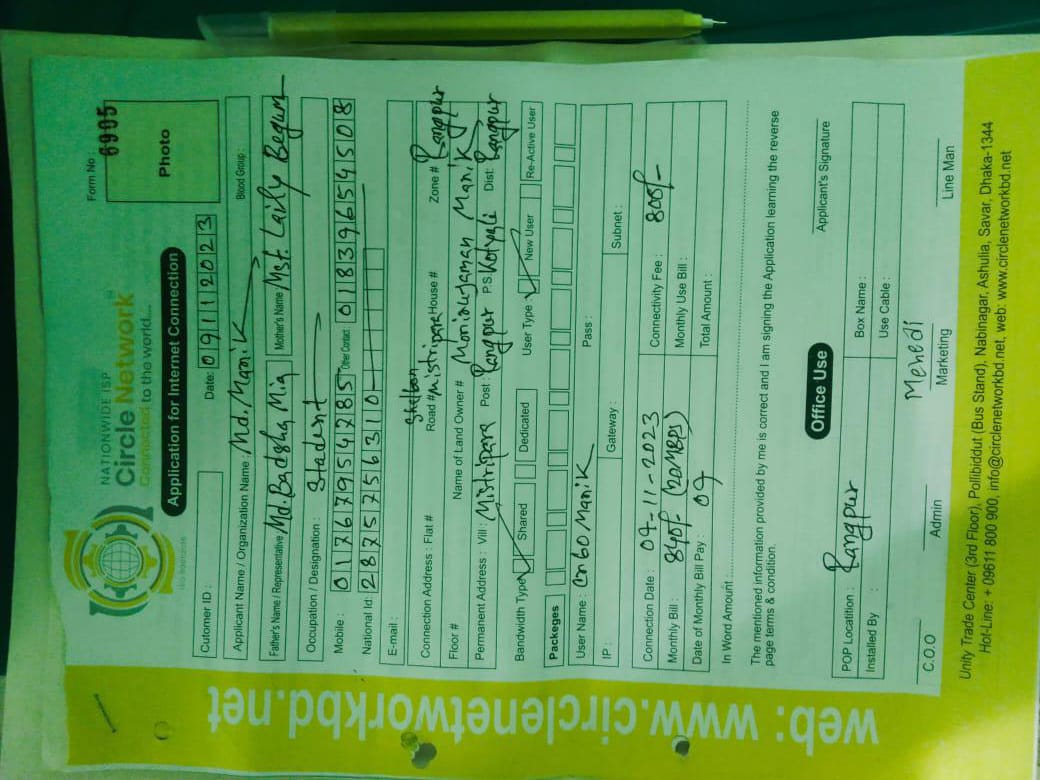 NATIONWIDE ISP
Circle Network
Connected to the world....
Form No : 6905
Application for Internet Connection
Photo
Cutomer ID :
Date: 09112023
Applicant Name / Organization Name : Md. Manik
Blood Group :
Father's Name / Representative / Md. Badsha Mia
Mother's Name / Mst. Laily Begum
Occupation / Designation : Student
Mobile : 01767954785 Other Contact 01839654508
National Id : 2875756310
E-mail :
Connection Address : Flat # Road # mistripara House # Zone # Rangpur
Floor # Name of Land Owner # Manik
Permanent Address : Vill : Mistripara Post : Rangpur P.S Kotyali Dist: Rangpur
Bandwidth Type Shared Dedicated User Type : New User Re-Active User
Packeges
User Name : Cn60 Manik Pass :
IP : Gateway : Subnet :
Connection Date : 09-11-2023 Connectivity Fee : 800/-
Monthly Bill : 840/- (20MBPS) Monthly Use Bill :
Date of Monthly Bill Pay : 09 Total Amount :
In Word Amount :
The mentioned information provided by me is correct and I am signing the Application learning the reverse
page terms & condition.
Office Use
Applicant's Signature
POP Locatition : Rangpur Box Name :
Installed By : Use Cable :
Mehedi
C.O.O Admin Marketing Line Man
Unity Trade Center (3rd Floor), Pollibiddut (Bus Stand), Nabinagar, Ashulia, Savar, Dhaka-1344
Hot-Line: + 09611 800 900, info@circlenetworkbd.net, web: www.circlenetworkbd.net
web: www.circlenetworkbd.net